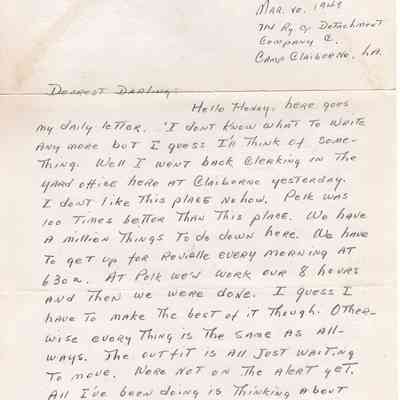 Mar. 10, 1944
714 Ry Op Detachment
Company C.
Camp Claiborne, La.
Dearest Darling:
Hello Honey, here goes
my daily letter. I dont know what to write
any more but I guess I'll think of some-
thing. Well I went back clerking in the
yard office here at Claiborne yesterday.
I dont like this place nohow. Polk was
100 times better than this place. We have
a million things to do down here. We have
to get up for Revielle every morning at
630a. At Polk we'd work our 8 hours
and then we were done. I guess I
have to make the best of it though. Other-
wise every thing is the same as all-
ways. The outfit is all just waiting
to move. Were not on the alert yet.
All I've been doing is thinking about